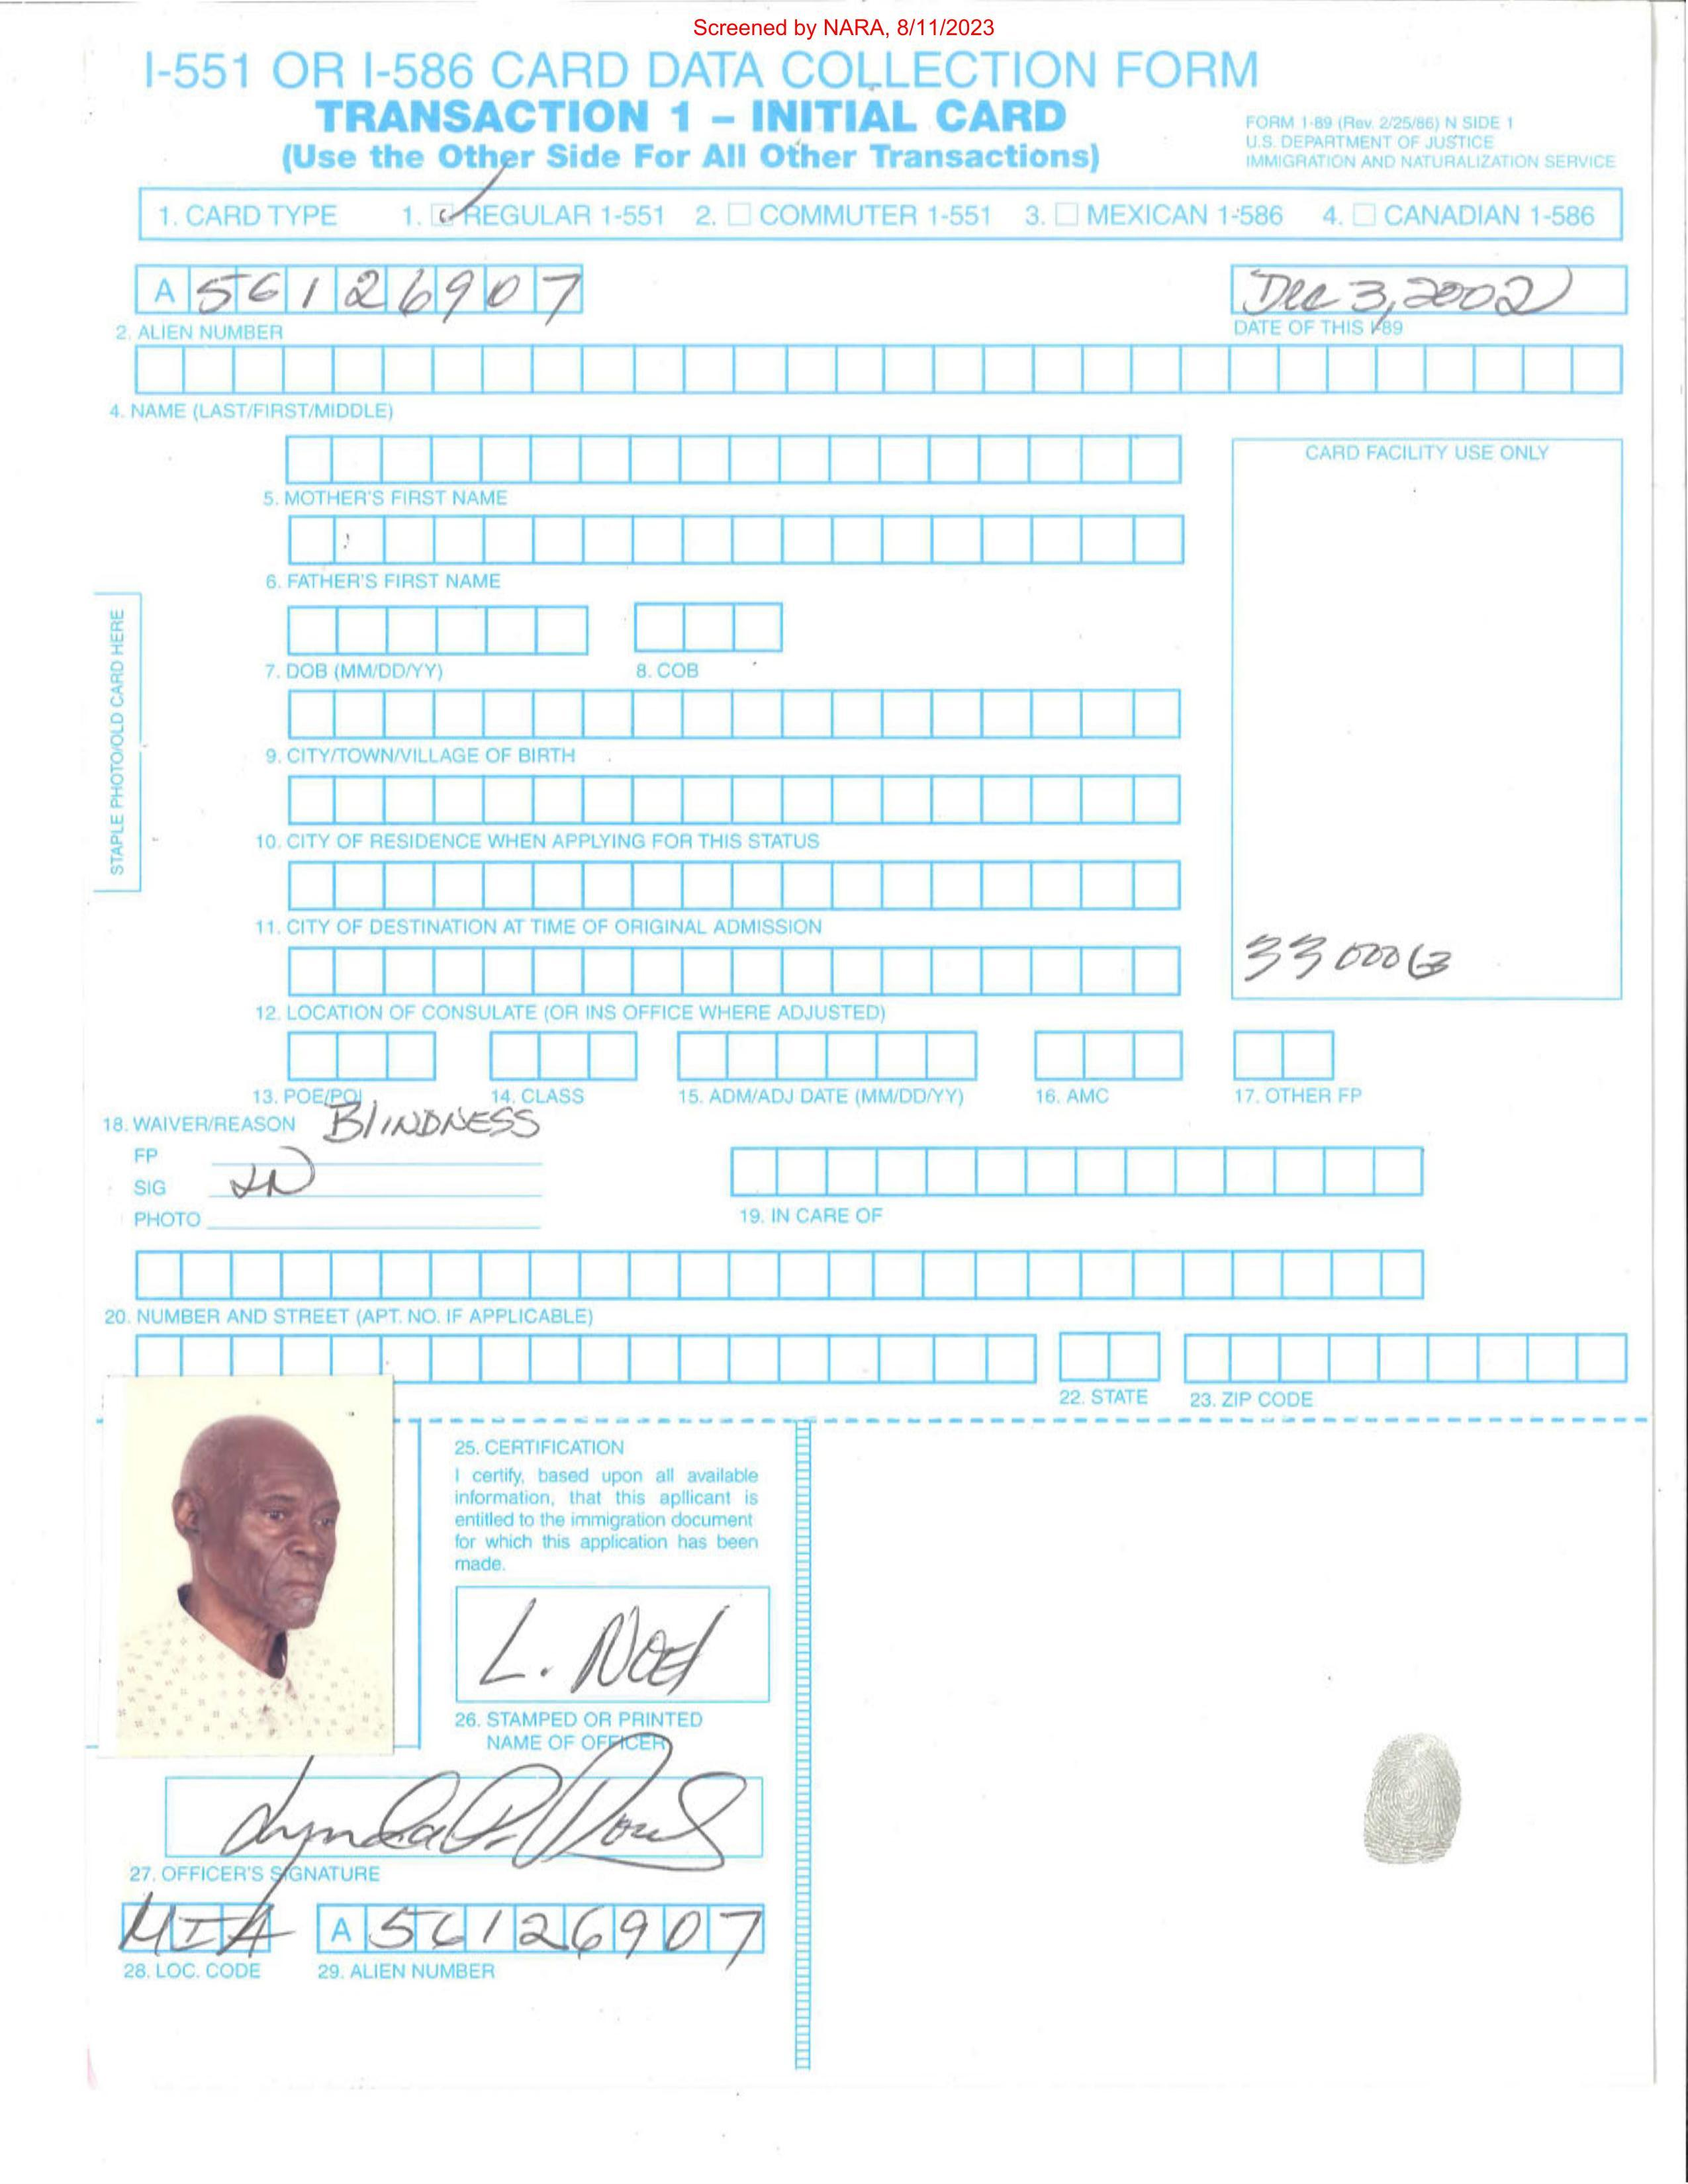 Screened by NARA, 8/11/2023
I-551 OR I-586 CARD DATA COLLECTION FORM
TRANSACTION 1 – INITIAL CARD
(Use the Other Side For All Other Transactions)
FORM 1-89 (Rev. 2/25/86) N SIDE 1
U.S. DEPARTMENT OF JUSTICE
IMMIGRATION AND NATURALIZATION SERVICE
1. CARD TYPE 1. REGULAR 1-551 2. COMMUTER 1-551 3. MEXICAN 1-586 4. CANADIAN 1-586
A 56126907 Dec 3, 2002
2. ALIEN NUMBER DATE OF THIS I-89
4. NAME (LAST/FIRST/MIDDLE)
CARD FACILITY USE ONLY
5. MOTHER'S FIRST NAME
6. FATHER'S FIRST NAME
STAPLE PHOTO/OLD CARD HERE
7. DOB (MM/DD/YY) 8. COB
9. CITY/TOWN/VILLAGE OF BIRTH
10. CITY OF RESIDENCE WHEN APPLYING FOR THIS STATUS
11. CITY OF DESTINATION AT TIME OF ORIGINAL ADMISSION
12. LOCATION OF CONSULATE (OR INS OFFICE WHERE ADJUSTED)
13. POE/POI 14. CLASS 15. ADM/ADJ DATE (MM/DD/YY) 16. AMC 17. OTHER FP
18. WAIVER/REASON BlINDNESS
FP
SIG LN
PHOTO
19. IN CARE OF
20. NUMBER AND STREET (APT. NO. IF APPLICABLE)
22. STATE 23. ZIP CODE
25. CERTIFICATION
I certify, based upon all available
information, that this apllicant is
entitled to the immigration document
for which this application has been
made.
L. Noel
26. STAMPED OR PRINTED
NAME OF OFFICER
27. OFFICER'S SIGNATURE
MIA A 56126907
28. LOC. CODE 29. ALIEN NUMBER